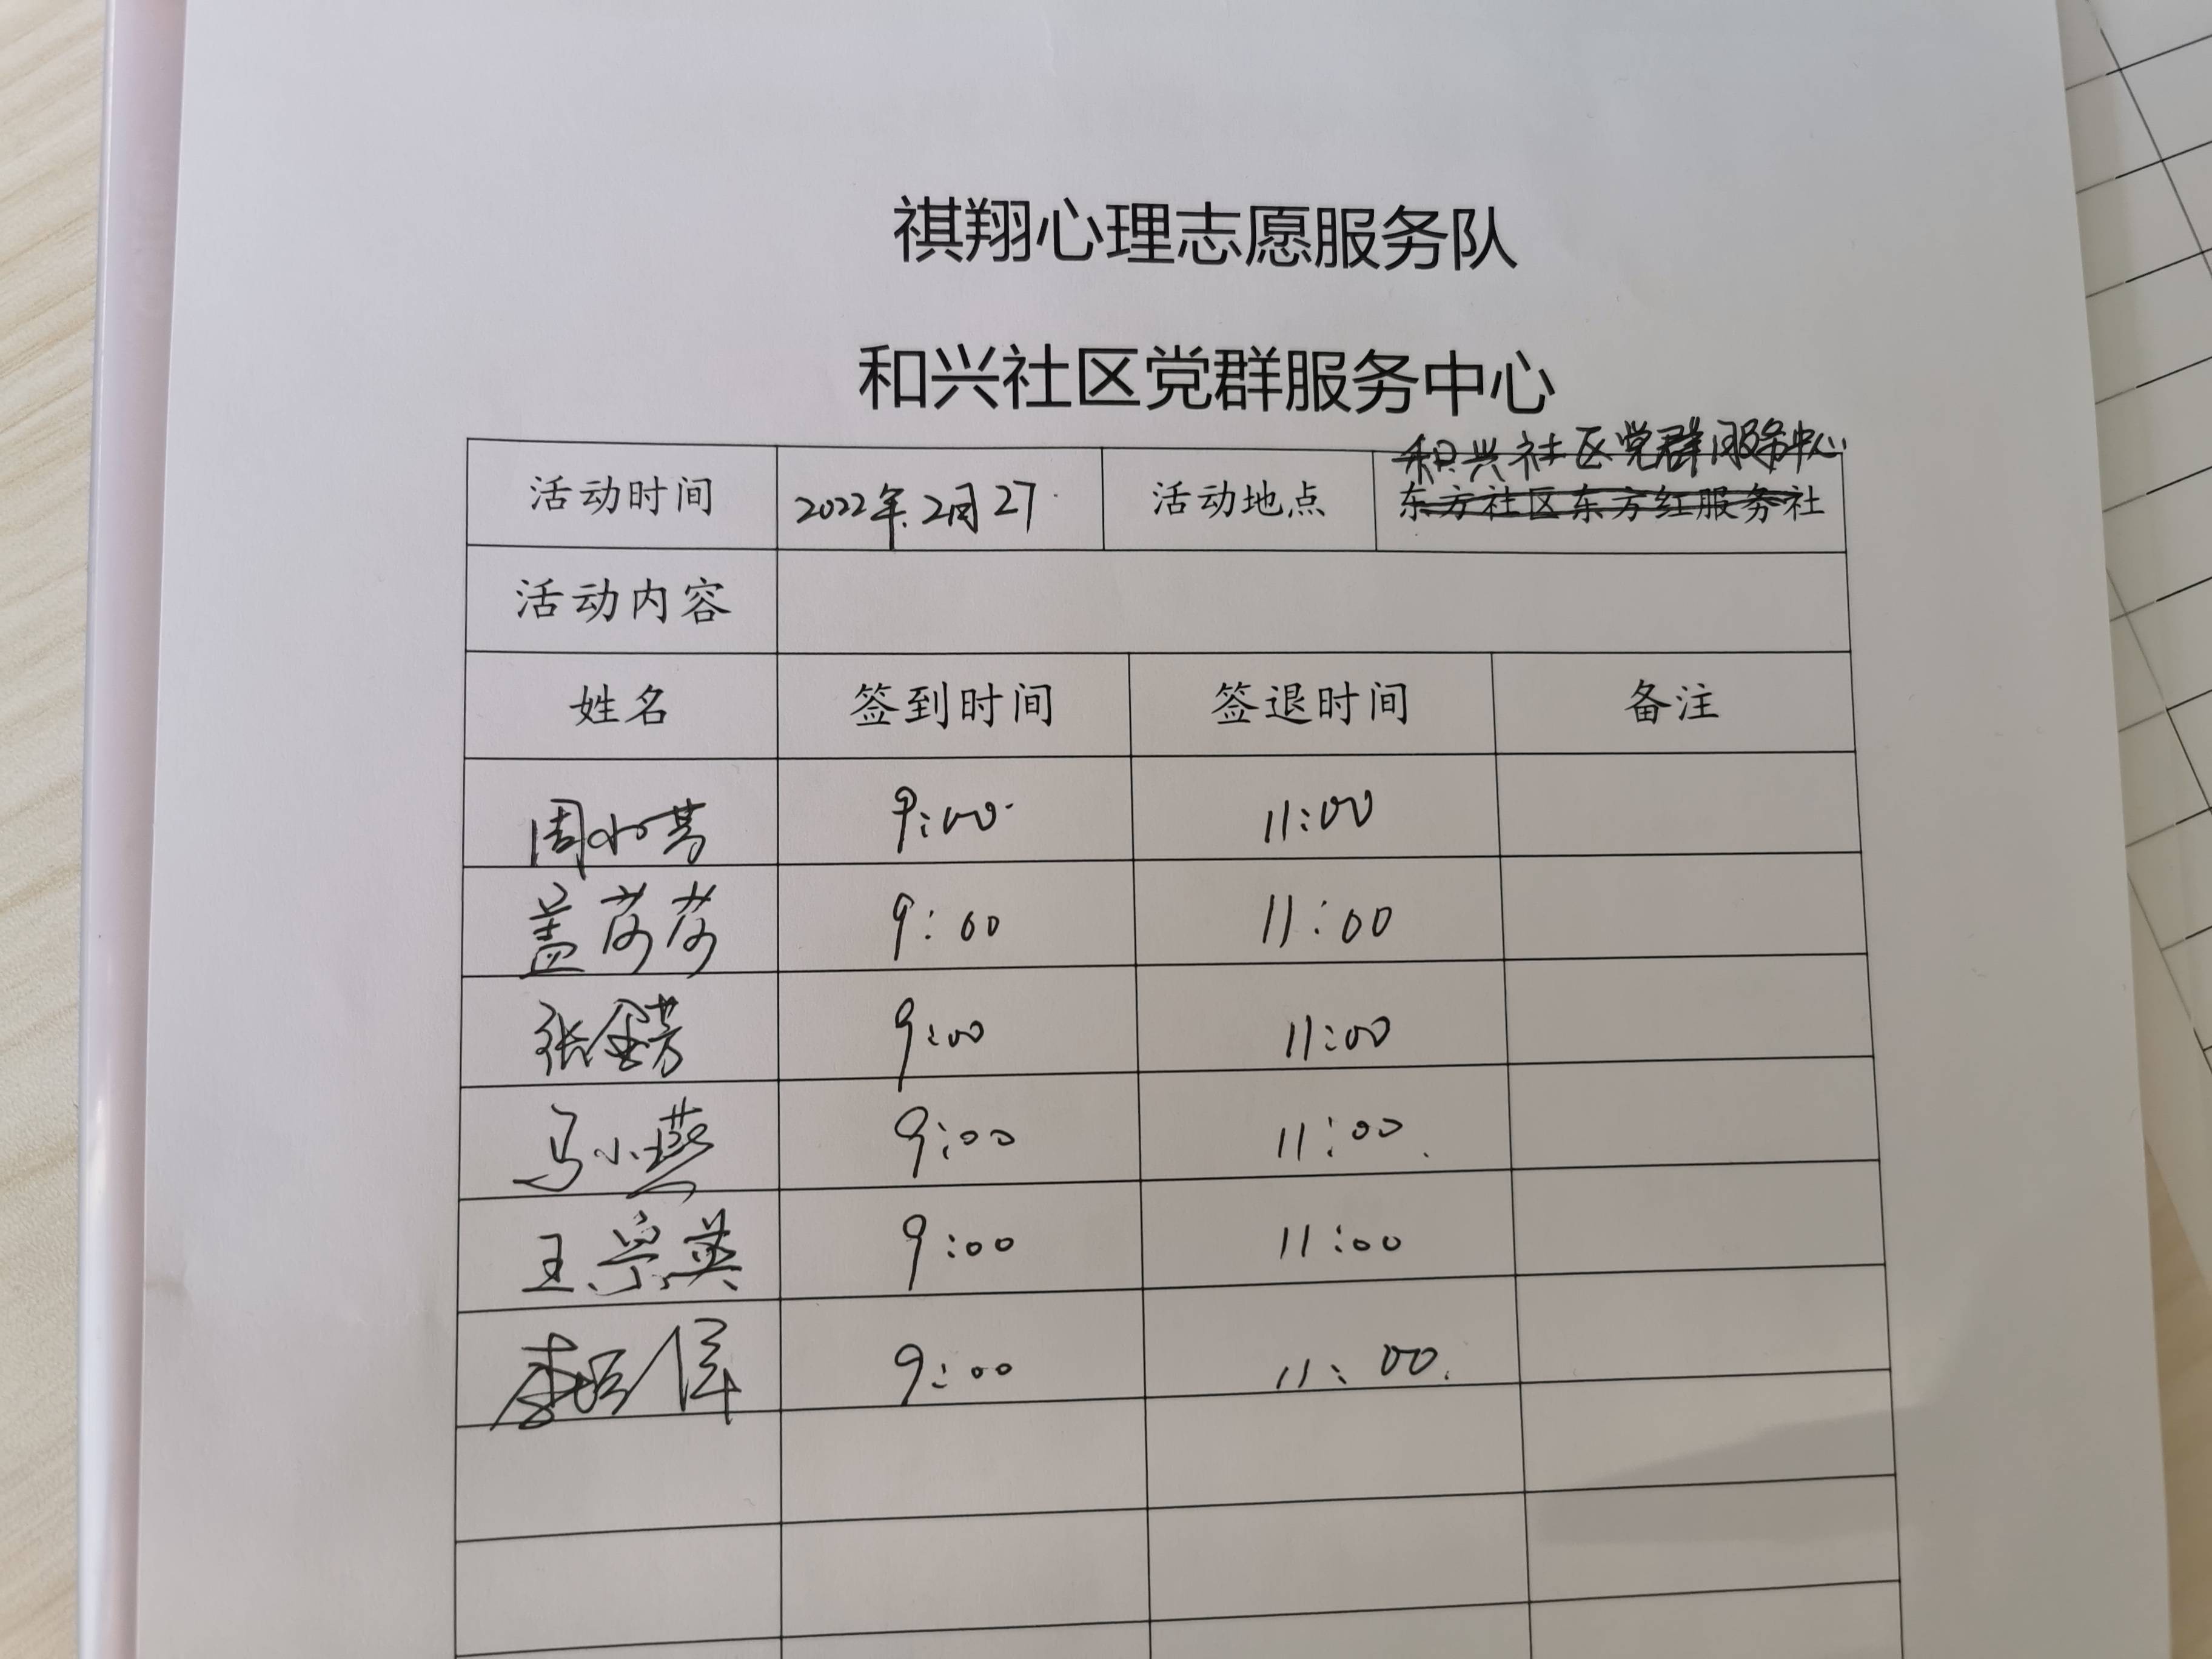 祺翔心理志愿服务队
和兴社区党群服务中心
和兴社区党群服务中心
活动时间 2022年2月27 活动地点 东方社区东方红服务社
活动内容
姓名 签到时间 签退时间 备注
周小芳 9:00 11:00
盖莎莎 9:00 11:00
张金芳 9:00 11:00
马小燕 9:00 11:00
王崇英 9:00 11:00
李 9:00 11:00